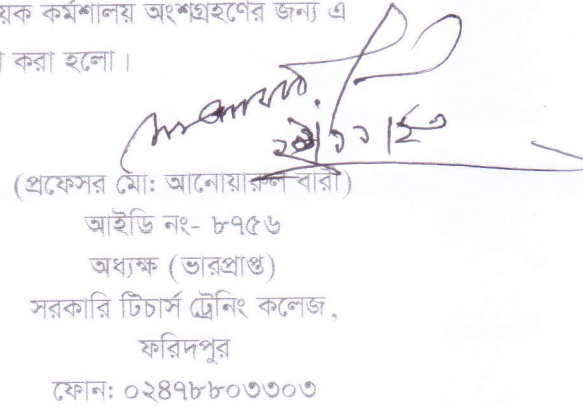 য়ক কর্মশালায় অংশগ্রহণের জন্য এ
করা হলো।
(প্রফেসর মো: আনোয়ারুল বারী)
আইডি নং- ৮৭৫৬
অধ্যক্ষ (ভারপ্রাপ্ত)
সরকারি টিচার্স ট্রেনিং কলেজ,
ফরিদপুর
ফোন: ০২৪৭৮৮০৩৩০৩